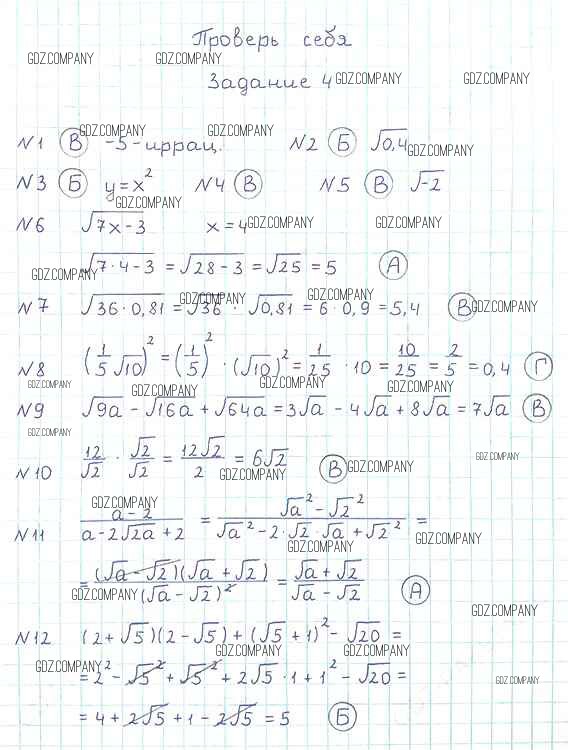 Проверь себя
GDZ.COMPANY GDZ.COMPANY
Задание 4 GDZ.COMPANY GDZ.COMPANY
GDZ.COMPANY GDZ.COMPANY
N1 В -5 - иррац. N2 Б √0,4 GDZ.COMPANY
N3 Б y = x² N4 В N5 В √-2
GDZ.COMPANY
N6 √7x - 3 x = 4 GDZ.COMPANY GDZ.COMPANY
√7·4 - 3 = √28 - 3 = √25 = 5 А
GDZ.COMPANY
GDZ.COMPANY GDZ.COMPANY
N7 √36·0,81 = √36 · √0,81 = 6·0,9 = 5,4 В GDZ.COMPANY
N8 (1/5 √10)² = (1/5)² · (√10)² = 1/25 · 10 = 10/25 = 2/5 = 0,4 Г
GDZ.COMPANY GDZ.COMPANY GDZ.COMPANY GDZ.COMPANY
N9 √9a - √16a + √64a = 3√a - 4√a + 8√a = 7√a В
GDZ.COMPANY GDZ.COMPANY
N10 12/√2 · √2/√2 = 12√2/2 = 6√2 В GDZ.COMPANY
GDZ.COMPANY
GDZ.COMPANY
N11 a - 2/a - 2√2a + 2 = √a² - √2²/√a² - 2·√2·√a + √2² =
GDZ.COMPANY GDZ.COMPANY
= (√a - √2)(√a + √2)/(√a - √2)² = √a + √2/√a - √2 А
GDZ.COMPANY
GDZ.COMPANY
N12 (2 + √5)(2 - √5) + (√5 + 1)² - √20 =
GDZ.COMPANY GDZ.COMPANY GDZ.COMPANY
= 2² - √5² + √5² + 2√5·1 + 1² - √20 =
GDZ.COMPANY
= 4 + 2√5 + 1 - 2√5 = 5 Б